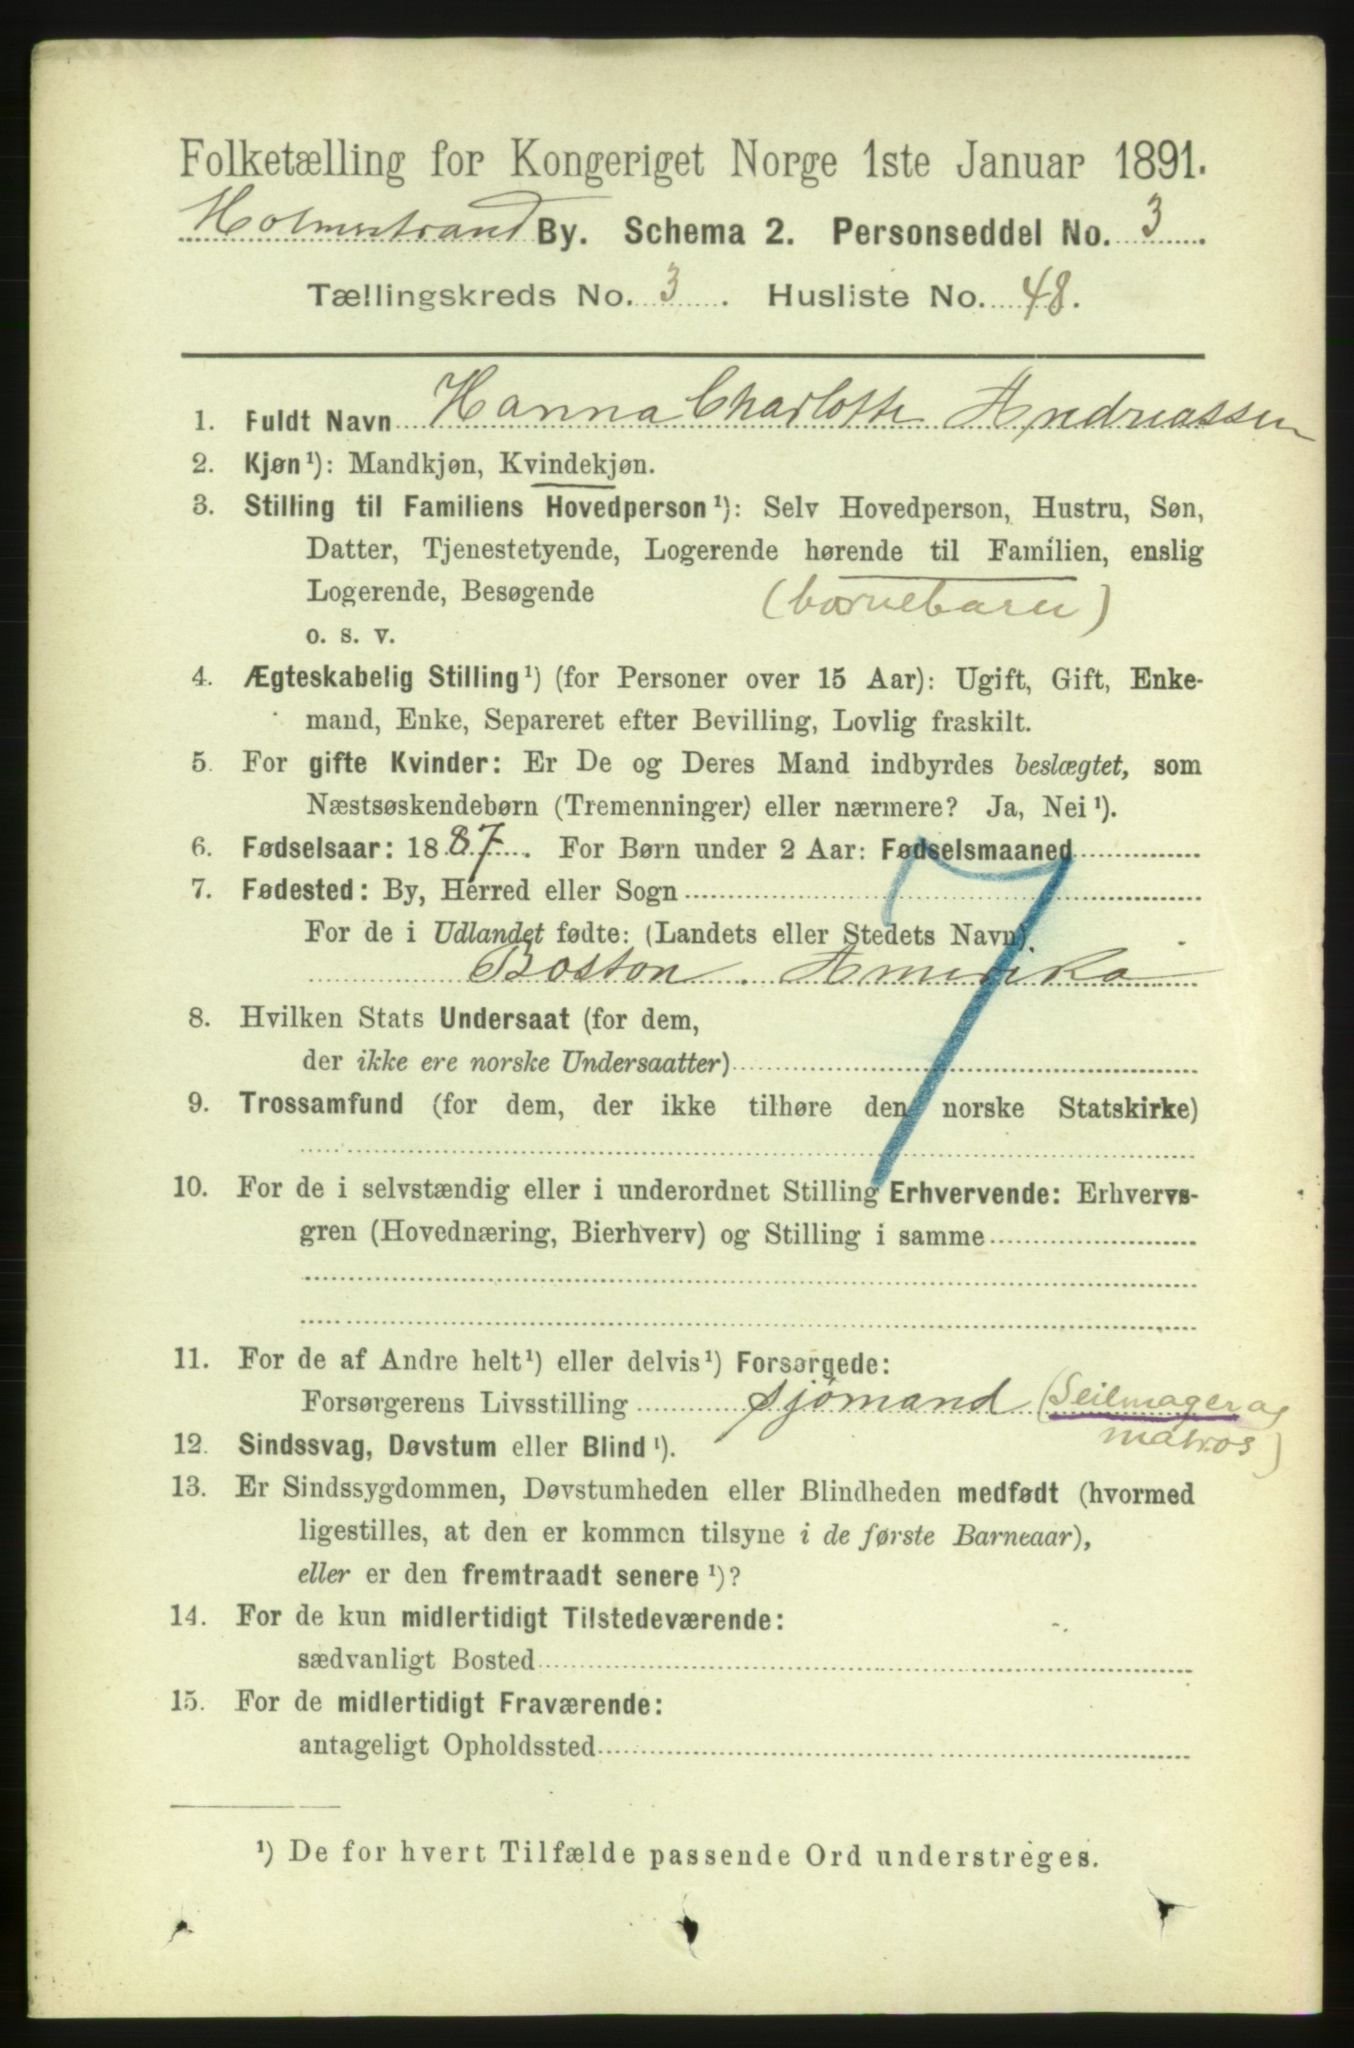 Folketælling for Kongeriget Norge 1ste Januar 1891.
Holmestrand By. Schema 2. Personseddel No. 3.
Tællingskreds No. 3. Husliste No. 48.
1. Fuldt Navn Hanna Charlotte Andreassen
2. Kjøn¹): Mandkjøn, Kvindekjøn.
3. Stilling til Familiens Hovedperson¹): Selv Hovedperson, Hustru, Søn,
Datter, Tjenestetyende, Logerende hørende til Familien, enslig
Logerende, Besøgende (børnebarn)
o. s. v.
4. Ægteskabelig Stilling¹) (for Personer over 15 Aar): Ugift, Gift, Enke-
mand, Enke, Separeret efter Bevilling, Lovlig fraskilt.
5. For gifte Kvinder: Er De og Deres Mand indbyrdes beslægtet, som
Næstsøskendebørn (Tremenninger) eller nærmere? Ja, Nei¹).
6. Fødselsaar: 1887. For Børn under 2 Aar: Fødselsmaaned
7. Fødested: By, Herred eller Sogn
For de i Udlandet fødte: (Landets eller Stedets Navn).
Boston. Amerika
7
8. Hvilken Stats Undersaat (for dem,
der ikke ere norske Undersaatter)
9. Trossamfund (for dem, der ikke tilhøre den norske Statskirke)
10. For de i selvstændig eller i underordnet Stilling Erhvervende: Erhvervs-
gren (Hovednæring, Bierhverv) og Stilling i samme
11. For de af Andre helt¹) eller delvis¹) Forsørgede:
Forsørgerens Livsstilling sjømand (Seilmager og
matros)
12. Sindssvag, Døvstum eller Blind¹).
13. Er Sindssygdommen, Døvstumheden eller Blindheden medfødt (hvormed
ligestilles, at den er kommen tilsyne i de første Barneaar),
eller er den fremtraadt senere¹)?
14. For de kun midlertidigt Tilstedeværende:
sædvanligt Bosted
15. For de midlertidigt Fraværende:
antageligt Opholdssted
¹) De for hvert Tilfælde passende Ord understreges.